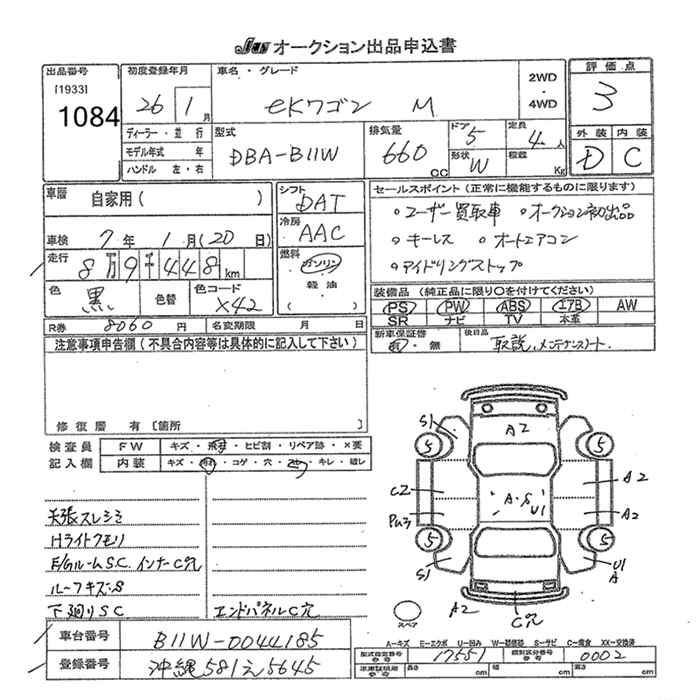 JU オークション出品申込書
出品番号
[1933]
1084
初度登録年月
26年 1月
ディーラー・並行
モデル年式 年
ハンドル 左・右
車名・グレード
eKワゴン M
2WD
・
4WD
評価点
3
外装 内装
D C
型式
DBA-B11W
排気量
660 CC
ドア 5
形状 W
定員 4人
積載 Kg
車歴 自家用( )
車検 7年 1月(20日)
走行 8万9千448km
色 黒
色替
色コード X42
シフト DAT
冷房 AAC
燃料 ガソリン
軽油
( )
セールスポイント(正常に機能するものに限ります)
○ユーザー買取車 ○オークション初出品
○キーレス ○オートエアコン
○アイドリングストップ
装備品(純正品に限り○を付けてください)
PS PW ABS エアB AW
SR ナビ TV 本革
R券 8060円 名変期限 月 日
新車保証書
有・無
後日品 取説、メンテナンスノート
注意事項申告欄(不具合内容等は具体的に記入して下さい)
修復歴 有[箇所
検査員 FW キズ・飛石・ヒビ割・リペア跡・×要
記入欄 内装 キズ・汚れ・コゲ・穴・キレ・破レ
天張スレシミ
Hライトクモリ
E/GルームS.C. インナーC穴
ルーフキズS
下廻りSC エンドパネルC穴
A2
S1
5 5
C2 A2
A・S
U1
A2
5 5
S1
U1
A
A2 C穴
スペア
車台番号 B11W-0044185
登録番号 沖縄581え5645
A-キズ E-エクボ U-凹み S-サビ C-腐食 XX-交換済
型式指定番号
参考 17551
類別区分番号
参考 0002
長さ cm 幅 cm 高さ cm